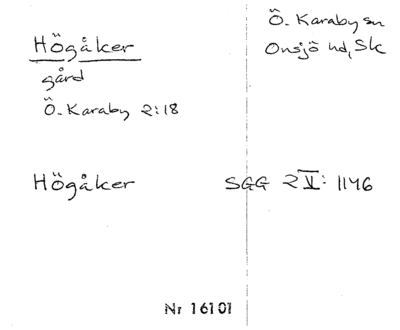 Högåker
gård
Ö. Karaby 2:18
Ö. Karaby sn
Onsjö hd, Sk
Högåker SGG 2 V: 1146
Nr 16101